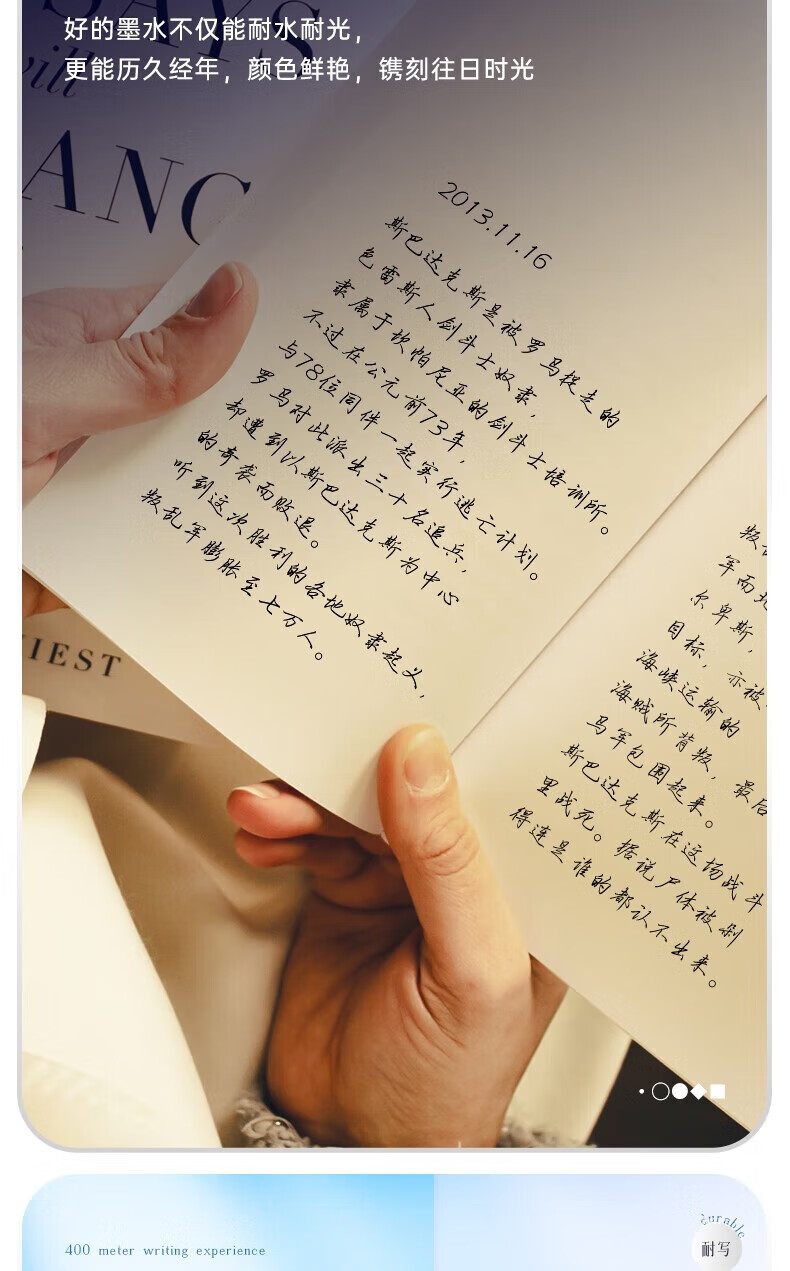 好的墨水不仅能耐水耐光，
更能历久经年，颜色鲜艳，镌刻往日时光
SAYS
will
ANC
IEST
2013.11.16
斯巴达克斯是被罗马捉走的
色雷斯人剑斗士奴隶，
隶属于坎帕尼亚的剑斗士培训所。
不过在公元前73年，
与78位同伴一起实行逃亡计划。
罗马对此派出三十名追兵，
却遭到以斯巴达克斯为中心
的奇袭而败退。
听到这次胜利的各地奴隶起义，
叛乱军膨胀至七万人。
叛
军而
尔卑斯，
目标，亦被
海峡运输的
海贼所背叛，最后
马军包围起来。
斯巴达克斯在这场战斗
里战死。据说尸体被剁
得连是谁的都认不出来。
400 meter writing experience
durable
耐写